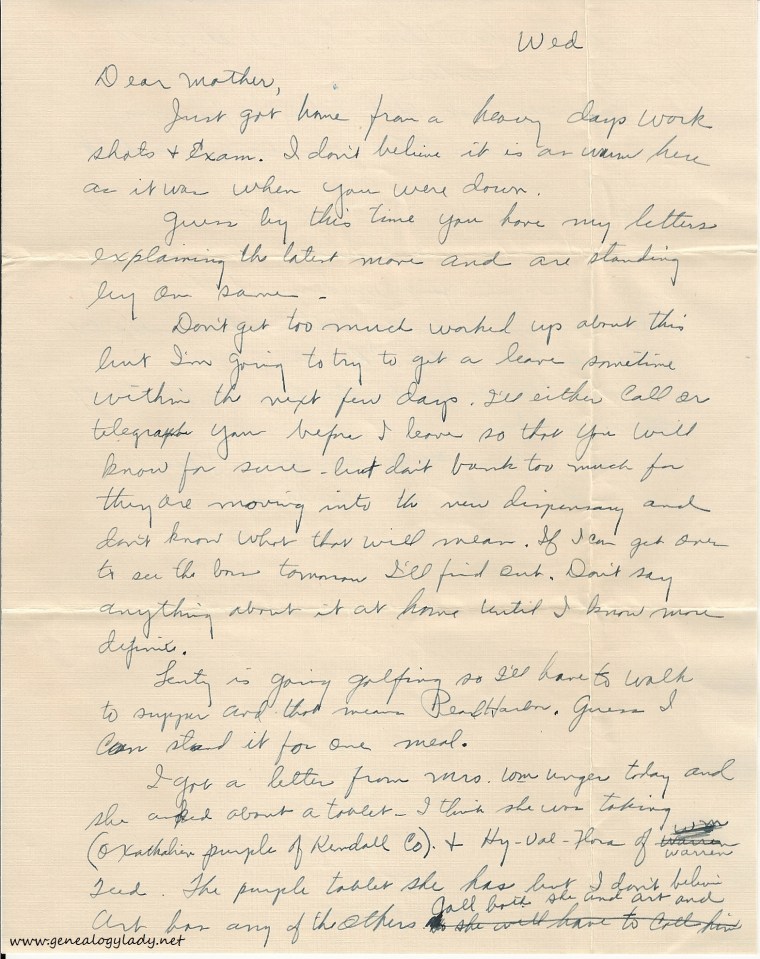 Wed
Dear Mother,
Just got home from a heavy days work
shots + Exam. I don't believe it is as warm here
as it was when you were down.
Guess by this time you have my letters
explaining the latest move and are standing
by on same -
Don't get too much worked up about this
but I'm going to try to get a leave sometime
within the next few days. I'll either call or
telegraph you before I leave so that you will
know for sure - but don't bank too much for
they are moving into the new dispensary and
don't know what that will mean. If I can get over
to see the boss tomorrow I'll find out. Don't say
anything about it at home until I know more
definite.
is going golfing so I'll have to walk
to supper and that means Pearl Harbor. Guess I
can stand it for one meal.
I got a letter from Mrs. Wm Unger today and
she asked about a tablet - I think she was taking
( purple of Kendall Co). + Hy-Val-Flora of Warren
Teed. The purple tablet she has but I don't believe
call both she and Art and
Art has any of the others so she will have to call him
www.genealogylady.net